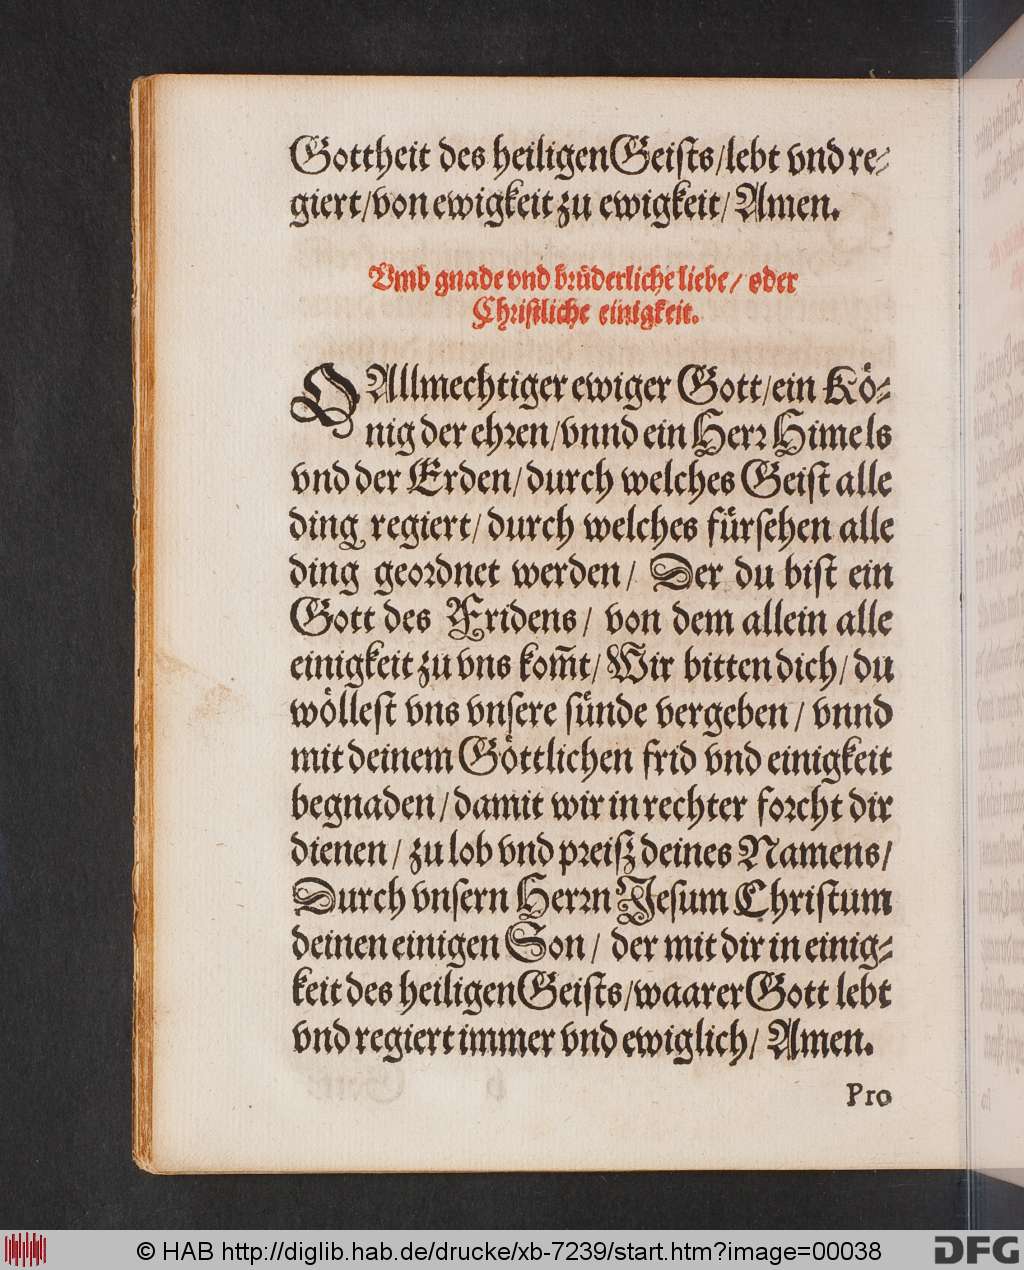 Gottheit des heiligen Geiſts/ lebt vnd re⸗
giert/ von ewigkeit zu ewigkeit/ Amen.
Vmb gnade vnd bruͤderliche liebe/ oder
Chriſtliche einigkeit.
O Allmechtiger ewiger Gott/ ein Koͤ⸗
nig der ehren/ vnnd ein Herr Himels
vnd der Erden/ durch welches Geiſt alle
ding regiert/ durch welches fuͤrſehen alle
ding geordnet werden/ Der du biſt ein
Gott des Fridens/ von dem allein alle
einigkeit zu vns kom̃t/ Wir bitten dich/ du
woͤlleſt vns vnſere ſuͤnde vergeben/ vnnd
mit deinem Goͤttlichen frid vnd einigkeit
begnaden/ damit wir in rechter forcht dir
dienen/ zu lob vnd preiß deines Namens/
Durch vnſern Herrn Jeſum Chriſtum
deinen einigen Son/ der mit dir in einig⸗
keit des heiligen Geiſts/ waarer Gott lebt
vnd regiert immer vnd ewiglich/ Amen.
Pro
© HAB http://diglib.hab.de/drucke/xb-7239/start.htm?image=00038
DFG